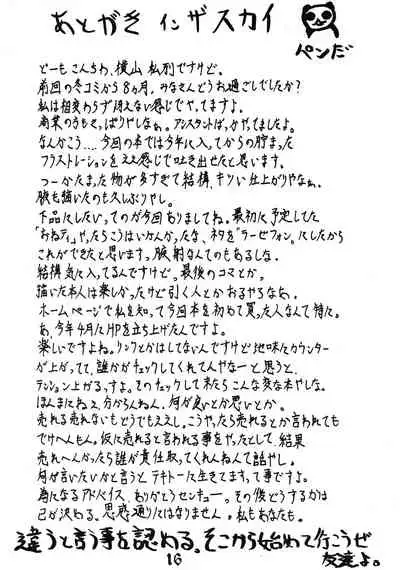 あとがき インザスカイ
ペンだ
どーもこんちわ、横山私列ですけど。
前回の冬コミから8ヵ月。みなさんどうお過ごしでしたか?
私は相変わらず冴えない感じでやってますよ。
商業のうもさっぱりやしなぁ。アシスタントばっかやってましたよ。
なんかこう....今回の本では今年に入ってからの貯まった
フラストレーションをええ感じで吐き出せたと思います。
つーかたまった物が多すぎて結構、キツい仕上がりやなぁ。
腋も描いたのも久しぶりやし。
下品にしたいってのが今回ありましてね。最初に予定してた
「おねティ」やったらこうはいかんかったな、ネタを"ラーゼフォン"にしたから
これができたと思います。腋射なんてのもあるしな。
結構気に入ってるんですけど。最後のコマとか。
描いた本人は楽しかったけど引く人とかおるやろなぁ、
ホームページで私を知って今回本を初めて買った人なんて特に。
あ、今年4月にHPを立ち上げたんですよ。
楽しいですよね。リンクとかはしてないんですけど地味にカウンター
が上がって、誰かがチェックしてくれてんやなーと思うと、
テンション上がるっすよ。そのチェックして来たらこんな変な本やしな。
ほんまにねえ、分からんねん、何が良いとか悪いとか。
売れる売れないもどうでもええし。こうやったら売れるとか言われても
でけへんもん。仮に売れると言われる事をやったとして、結果
売れへんかったら誰が責任取ってくれんねんて話やし。
何が言いたいかと言うと、テキトーに生きてますって事ですよ。
為になるアドバイス、ありがとうセンキュー。その後どうするかは
己が決める。思惑通りにはなりません。私もあなたも。
違うと言う事を認める。そこから始めて行こうぜ
友達よ。
16